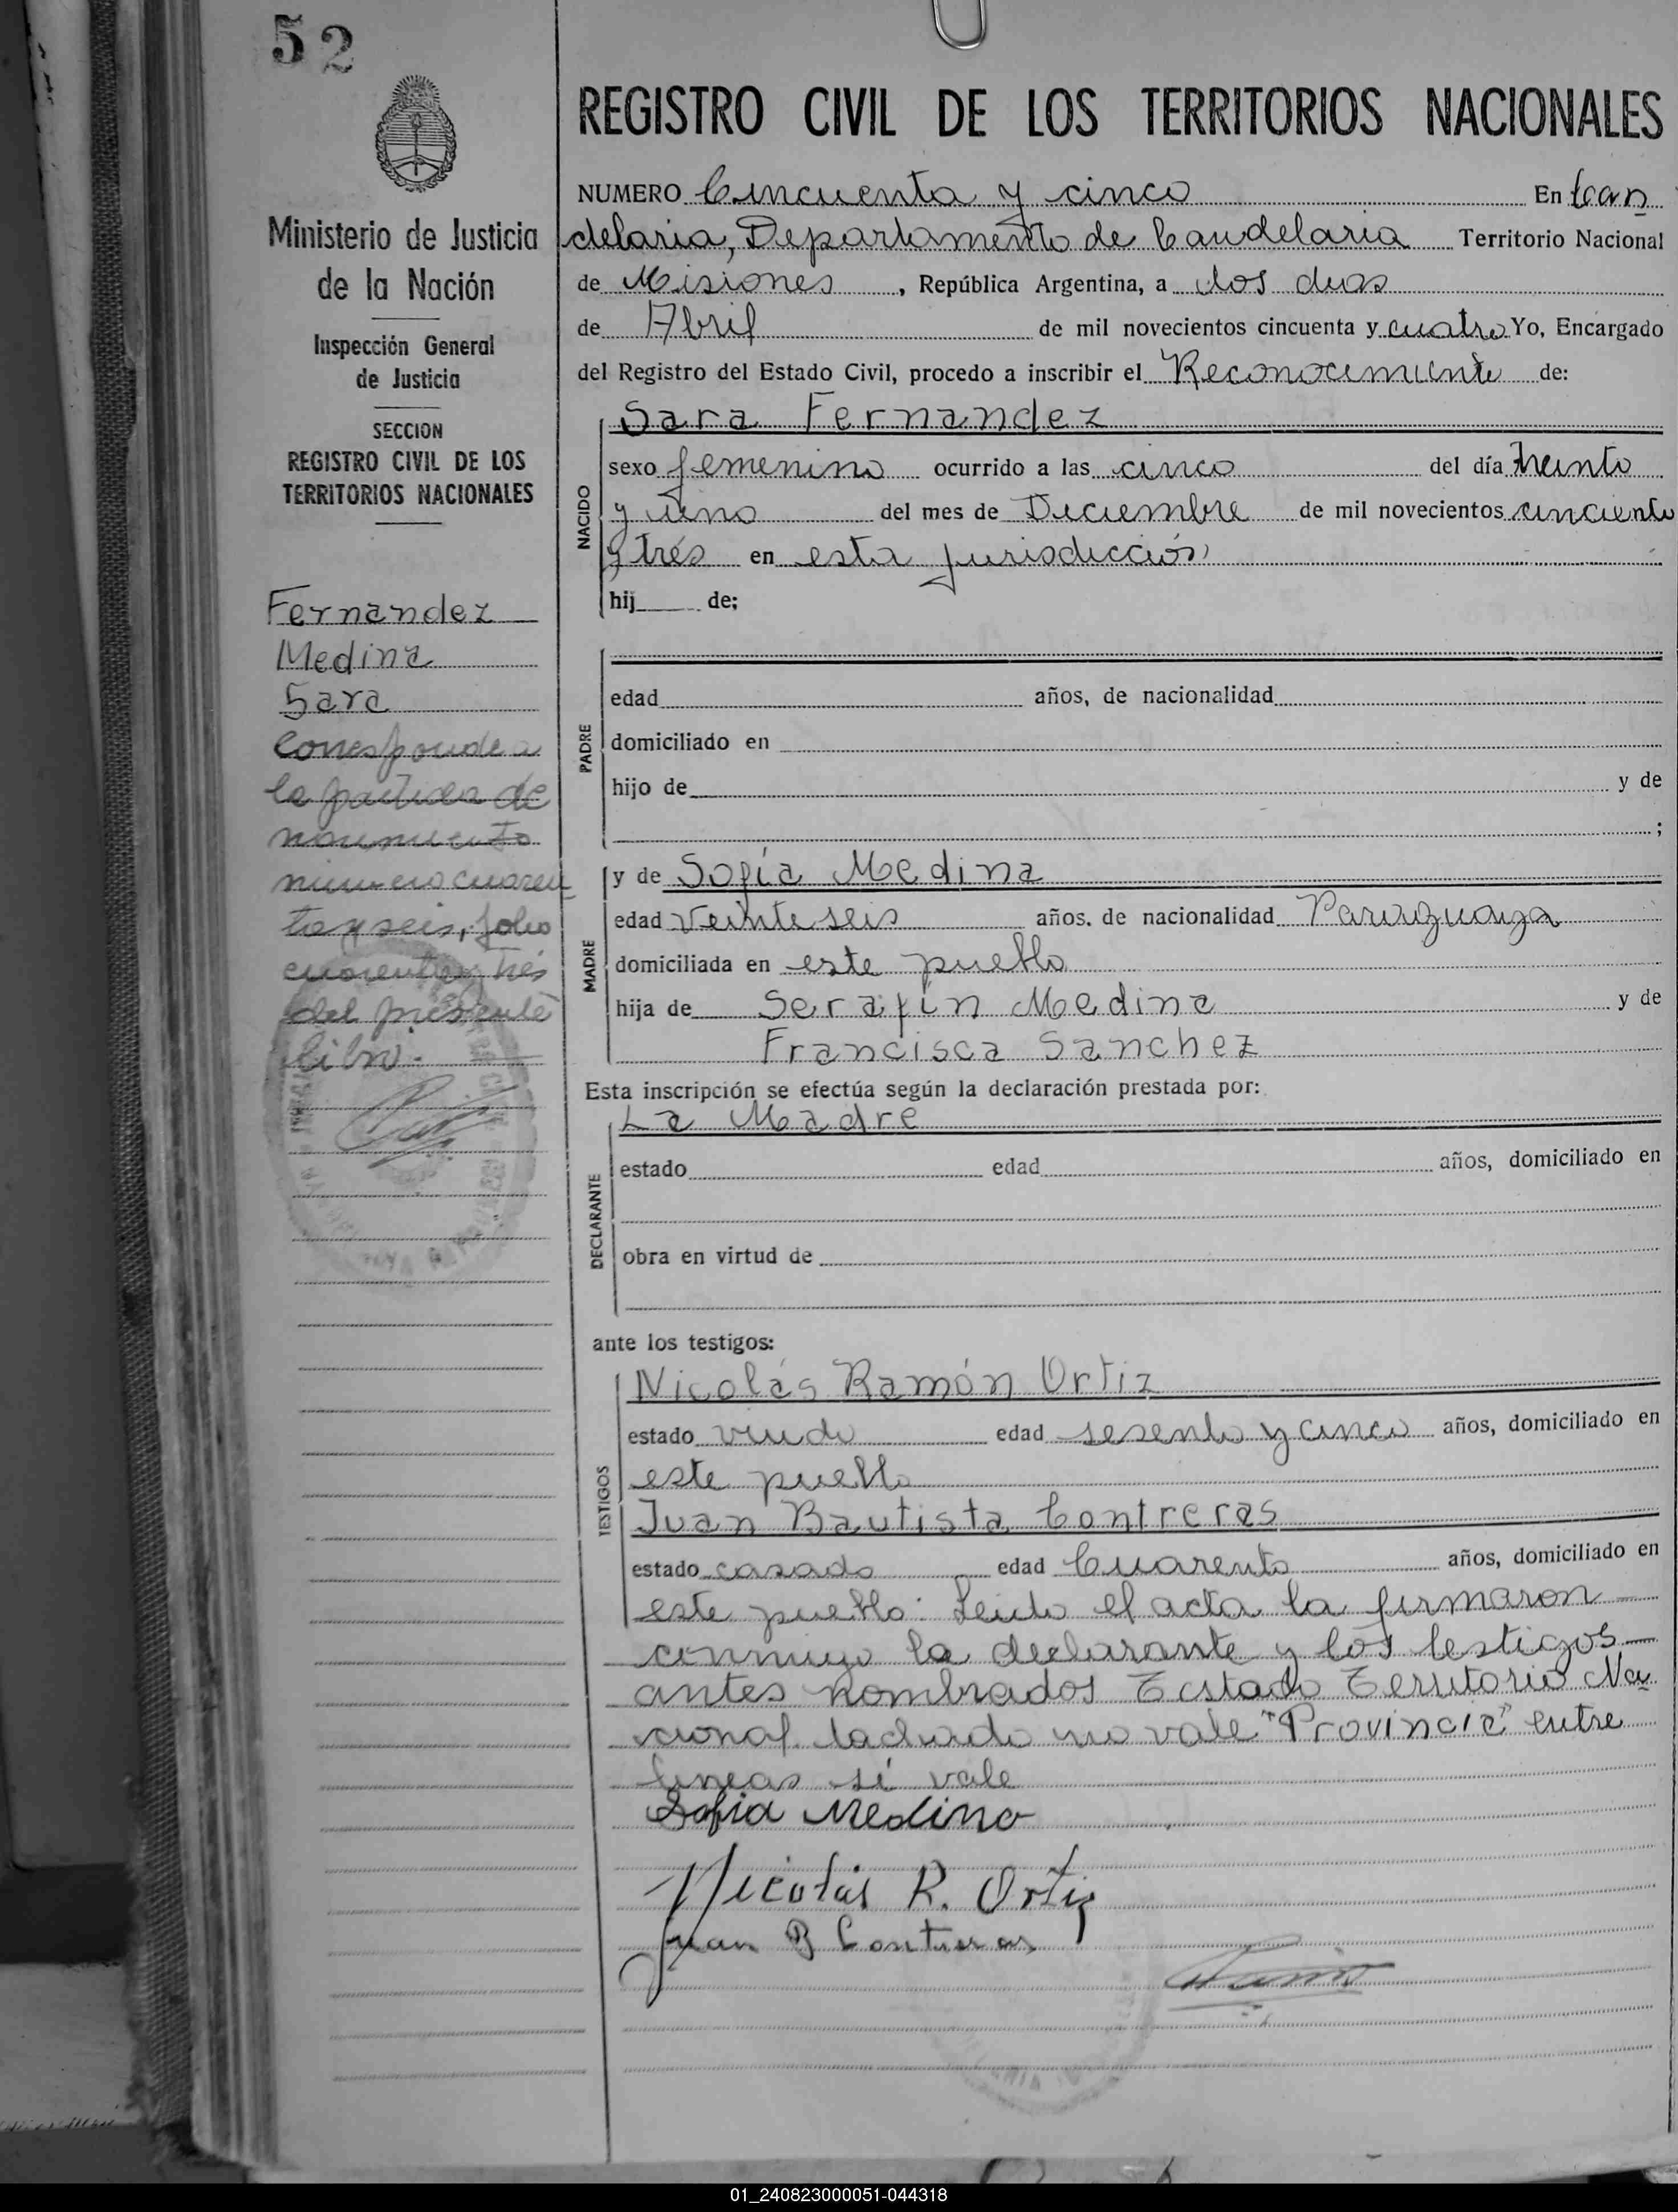 52
REGISTRO CIVIL DE LOS TERRITORIOS NACIONALES
Ministerio de Justicia
de la Nación
Inspección General
de Justicia
SECCION
REGISTRO CIVIL DE LOS
TERRITORIOS NACIONALES
Fernandez
Medina
Sara
Corresponde a
la partida de
nacimiento
número cuaren
ta y seis, folio
cuarenta y trés
del presente
libro.
NUMERO Cincuenta y cinco En Can
delaria, Departamento de Candelaria Territorio Nacional
de Misiones, República Argentina, a dos dias
de Abril de mil novecientos cincuenta y cuatro Yo, Encargado
del Registro del Estado Civil, procedo a inscribir el Reconocimiento de:
NACIDO
Sara Fernandez
sexo femenino ocurrido a las cinco del día treinta
y uno del mes de Diciembre de mil novecientos cincuenta
y trés en esta jurisdicción
hij de;
PADRE
edad años, de nacionalidad
domiciliado en
hijo de y de
;
MADRE
y de Sofía Medina
edad veinte seis años, de nacionalidad Paraguaya
domiciliada en este pueblo
hija de Serafín Medina y de
Francisca Sanchez
Esta inscripción se efectúa según la declaración prestada por:
DECLARANTE
La Madre
estado edad años, domiciliado en
obra en virtud de
ante los testigos:
TESTIGOS
Nicolás Ramón Ortiz
estado viudo edad sesenta y cinco años, domiciliado en
este pueblo
Juan Bautista Contreras
estado casado edad Cuarenta años, domiciliado en
este pueblo. Leida el acta la firmaron
conmigo la declarante y los testigos
antes nombrados Territorio Na
cional tachado no vale "Provincia" entre
lineas sí vale
Sofia Medina
Nicolás R. Ortiz
Juan B Contreras
01_240823000051-044318